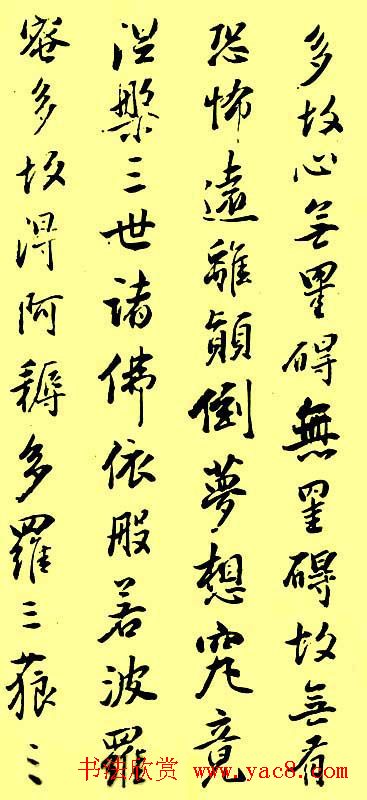 多故心無罣碍無罣碍故無有
恐怖遠離顛倒夢想究竟
涅槃三世諸佛依般若波羅
蜜多故得阿耨多羅三藐三
书法欣赏 www.yac8.com